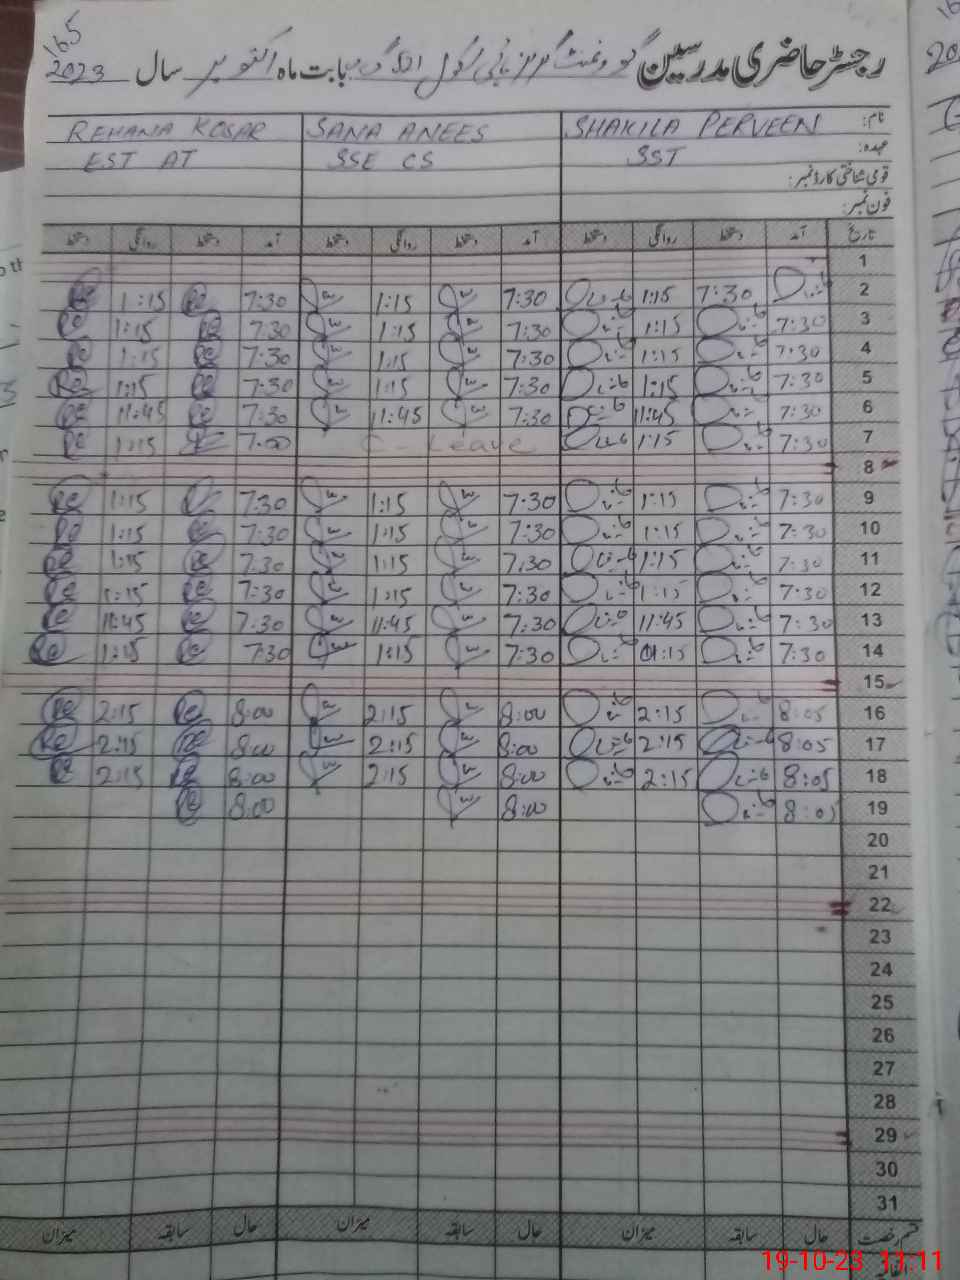 165
رجسٹر حاضری مدرسین گورنمنٹ گرلز ہائی سکول بابت ماہ اکتوبر سال 2023
نام: SHAKILA PERVEEN SANA ANEES REHANA KOSAR
عہدہ: SST SSE CS EST AT
قومی شناختی کارڈ نمبر:
فون نمبر:
تاریخ آمد دستخط روانگی دستخط آمد دستخط روانگی دستخط آمد دستخط روانگی دستخط
1
2 7:30 1:15 7:30 1:15 7:30 1:15
3 7:30 1:15 7:30 1:15 7:30 1:15
4 7:30 1:15 7:30 1:15 7:30 1:15
5 7:30 1:15 7:30 1:15 7:30 1:15
6 7:30 11:45 7:30 11:45 7:30 11:45
7 7:30 1:15 C - Leave 1:15
8
9 7:30 1:15 7:30 1:15 7:30 1:15
10 7:30 1:15 7:30 1:15 7:30 1:15
11 7:30 1:15 7:30 1:15 7:30 1:15
12 7:30 1:15 7:30 1:15 7:30 1:15
13 7:30 11:45 7:30 11:45 7:30 11:45
14 7:30 1:15 7:30 1:15 7:30 1:15
15
16 8:05 2:15 8:00 2:15 8:00 2:15
17 8:05 2:15 8:00 2:15 8:00 2:15
18 8:05 2:15 8:00 2:15 8:00 2:15
19 8:05 8:00 8:00
20
21
22
23
24
25
26
27
28
29
30
31
قسم رخصت حال سابقہ میزان حال سابقہ میزان حال سابقہ میزان
19-10-23 11:11